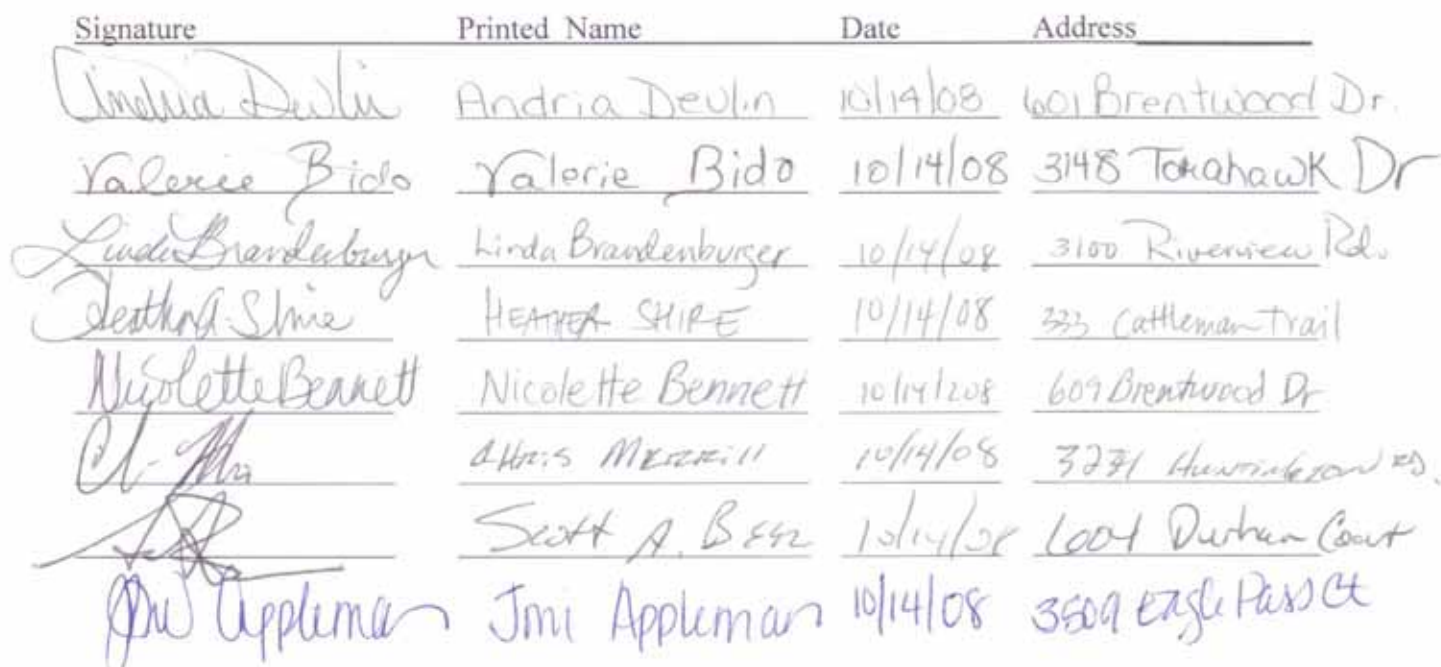 Signature Printed Name Date Address
Andria Devlin Andria Devlin 10/14/08 601 Brentwood Dr.
Valerie Bido Valerie Bido 10/14/08 3148 Tomahawk Dr
Linda Brandenburger Linda Brandenburger 10/14/08 3100 Riverview Rd.
Heather A. Shire HEATHER SHIRE 10/14/08 333 Cattleman Trail
Nicolette Bennett Nicolette Bennett 10/14/208 609 Brentwood Dr
Chris Merrill 10/14/08 Huntington RD.
Scott A. 10/14/08 Durham Court
Appleman Jmi Appleman 10/14/08 3509 Eagle Pass Ct